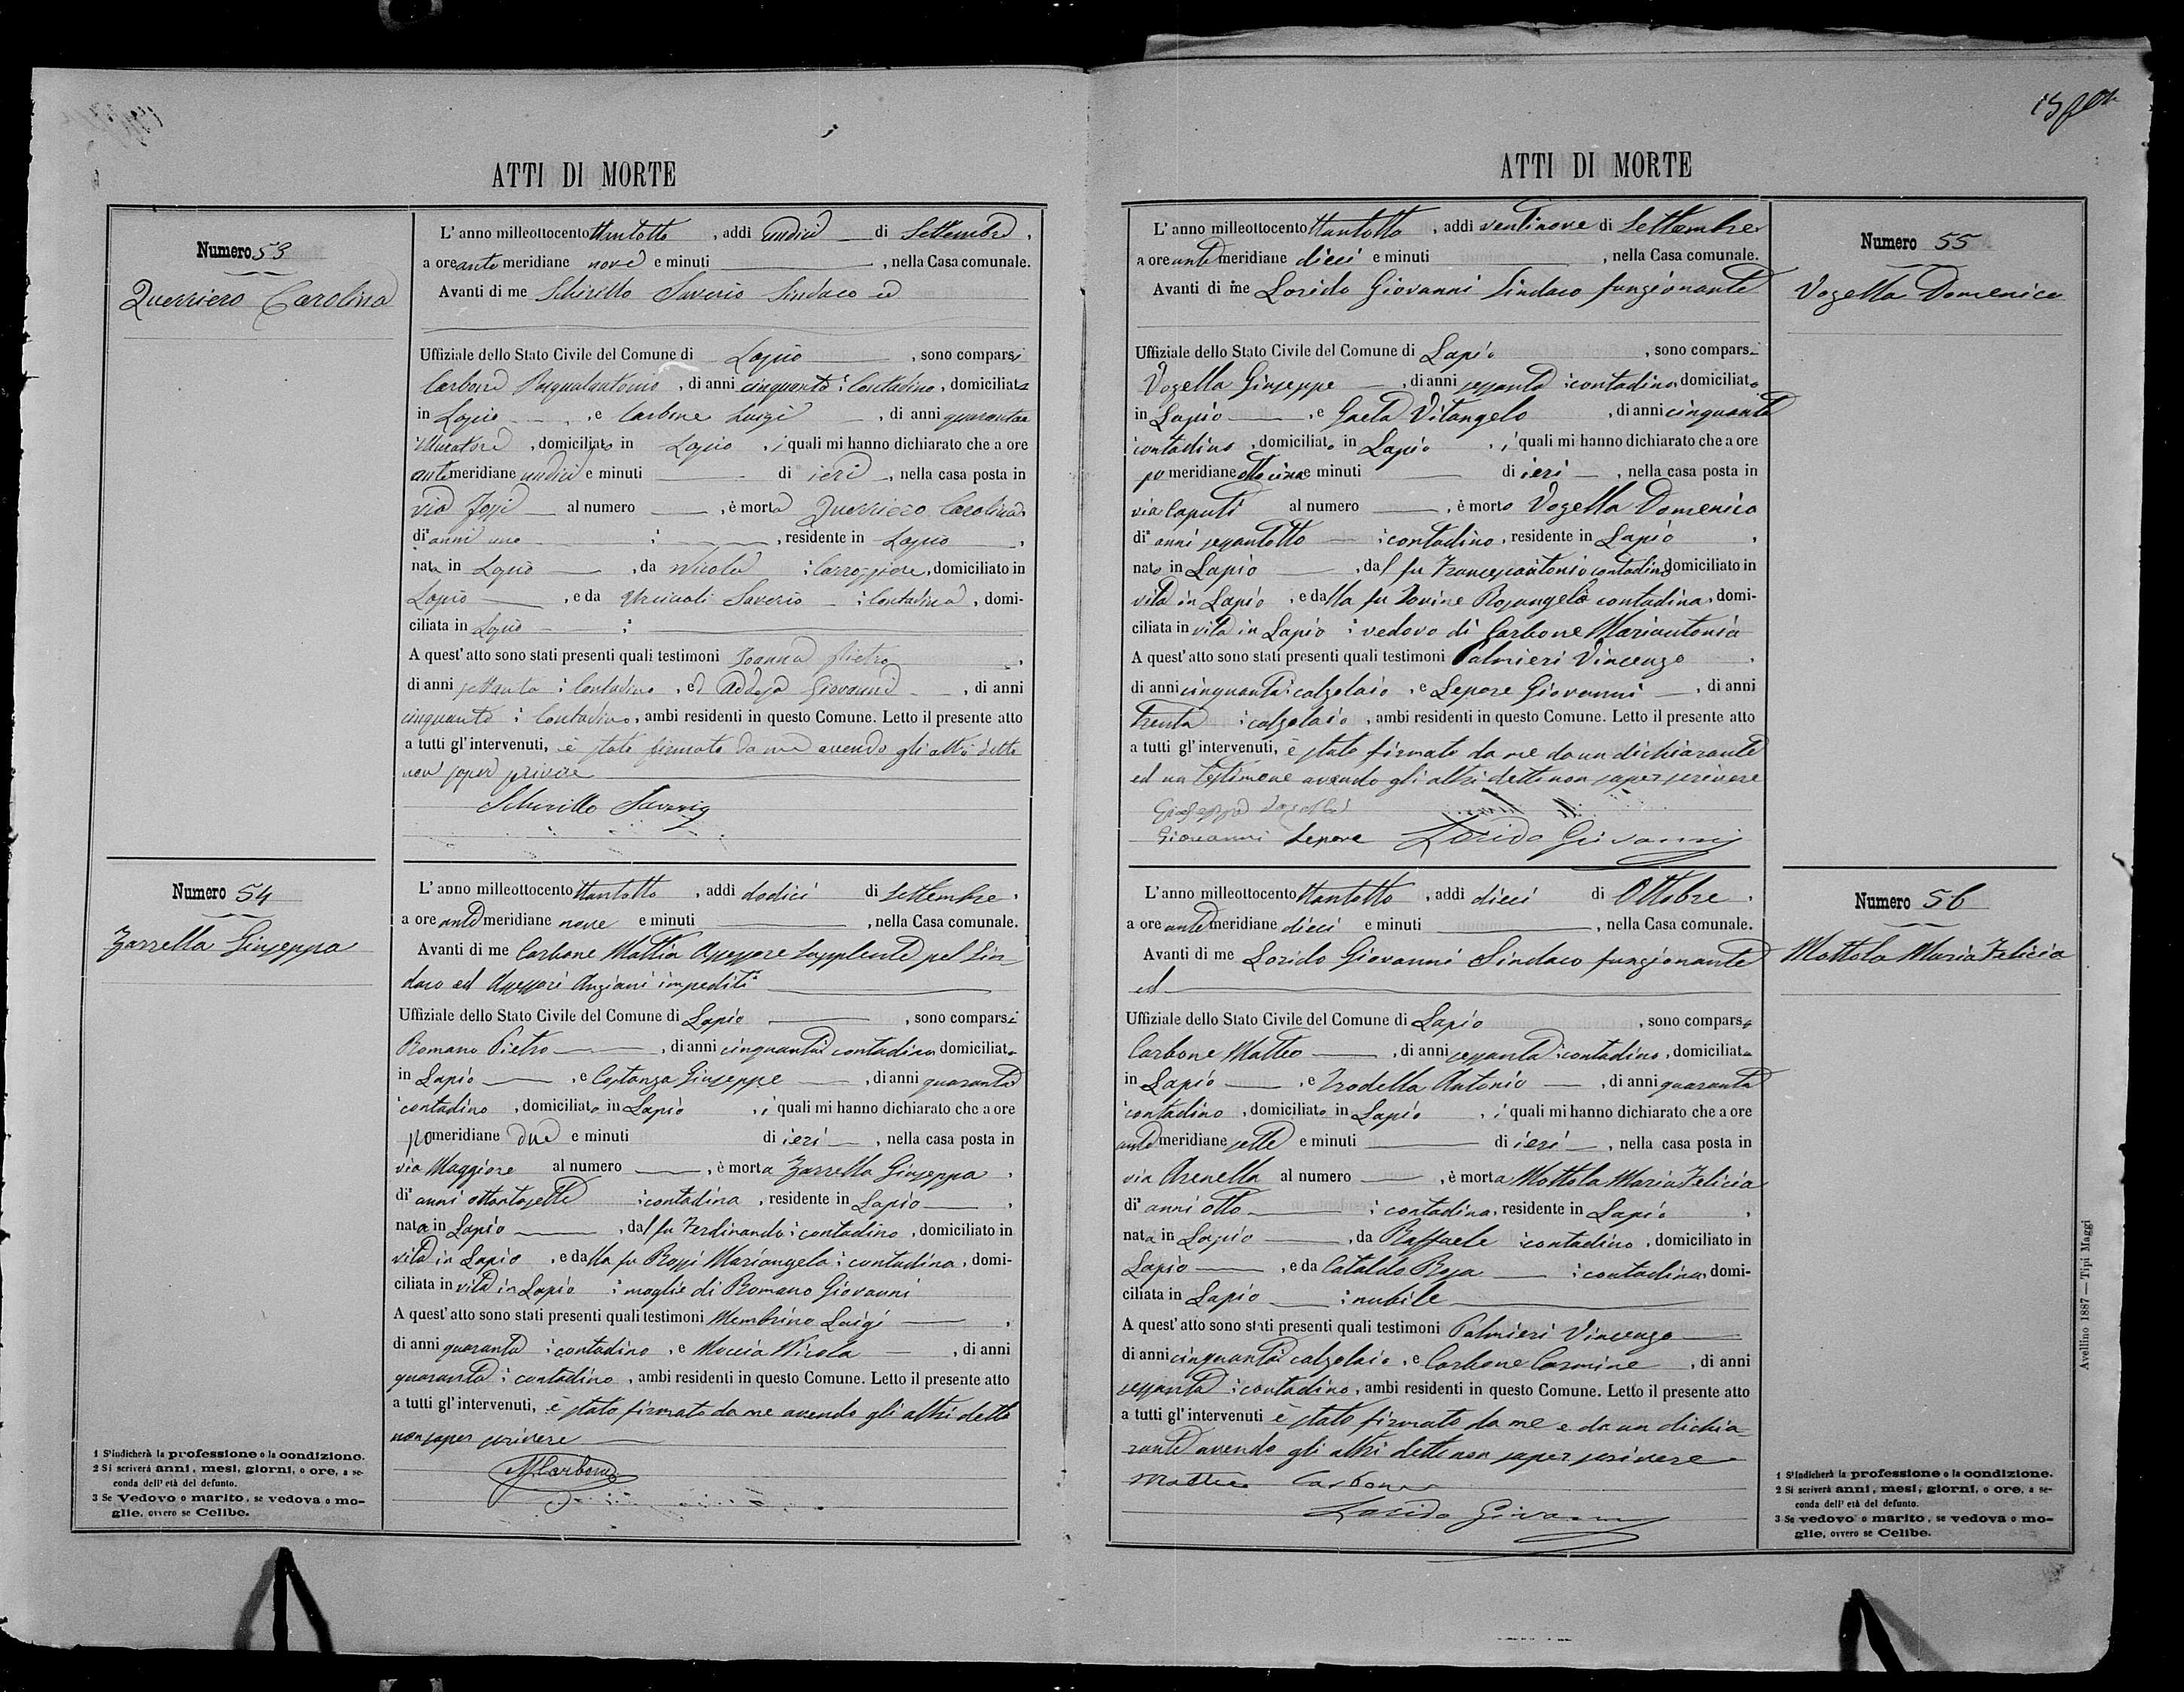 ATTI DI MORTE
Numero 53
Querriero Carolina
L' anno milleottocento ttantotto, addi undici di Settembre,
a ore ante meridiane nove e minuti, nella Casa comunale.
Avanti di me Schirillo Saverio Sindaco ed
Uffiziale dello Stato Civile del Comune di Lapio, sono comparsi
Carbone Pasqualantonio, di anni cinquanta; Contadino, domiciliato
in Lapio, e Carbone Luigi, di anni quaranta
Muratore, domiciliato in Lapio, i quali mi hanno dichiarato che a ore
ante meridiane undici e minuti di ieri, nella casa posta in
via al numero, è morta Querriero Carolina
di anni uno, residente in Lapio,
nata in Lapio, da Nicola, domiciliato in
Lapio, e da Saverio; Contadina, domi-
ciliata in Lapio
A quest' atto sono stati presenti quali testimoni Pietro,
di anni settanta; Contadino, ed Giovanni, di anni
cinquanta; Contadino, ambi residenti in questo Comune. Letto il presente atto
a tutti gl' intervenuti, è stato firmato da me avendo gli altri detto
non saper scrivere
Schirillo Saverio
Numero 54
Zarrella Giuseppa
L' anno milleottocento ttantotto, addi dodici di Settembre,
a ore ante meridiane nove e minuti, nella Casa comunale.
Avanti di me Carbone Mattia Assessore Supplente pel Sin-
daco ed Assessori Anziani impediti
Uffiziale dello Stato Civile del Comune di Lapio, sono comparsi
Romano Pietro, di anni cinquanta contadino domiciliato
in Lapio, e Costanza Giuseppe, di anni quaranta
contadino, domiciliato in Lapio, i quali mi hanno dichiarato che a ore
po meridiane due e minuti di ieri, nella casa posta in
via Maggiore al numero, è morta Zarrella Giuseppa,
di anni ottantasette; contadina, residente in Lapio,
nata in Lapio, dal fu Ferdinando; contadino, domiciliato in
vita in Lapio, e dalla fu Rossi Mariangela; contadina, domi-
ciliata in vita in Lapio; moglie di Romano Giovanni
A quest' atto sono stati presenti quali testimoni Membrino Luigi,
di anni quaranta; contadino, e Moccia Nicola, di anni
quaranta; contadino, ambi residenti in questo Comune. Letto il presente atto
a tutti gl' intervenuti, è stato firmato da me avendo gli altri detto
non saper scrivere
MCarbone
1 S'indicherà la professione o la condizione.
2 Si scriverà anni, mesi, giorni, o ore, a se-
conda dell' età del defunto.
3 Se Vedovo o marito, se vedova o mo-
glie, ovvero se Celibe.
ATTI DI MORTE
Numero 55
Vozella Domenico
L' anno milleottocento ttantotto, addi ventinove di Settembre
a ore ante meridiane dieci e minuti, nella Casa comunale.
Avanti di me Lorido Giovanni Sindaco funzionante
Uffiziale dello Stato Civile del Comune di Lapio, sono comparsi
Vozella Giuseppe, di anni sessanta; contadino domiciliato
in Lapio, e Gaeta Vitangelo, di anni cinquanta
contadino, domiciliato in Lapio, i quali mi hanno dichiarato che a ore
po meridiane e minuti di ieri, nella casa posta in
via Caputi al numero, è morto Vozella Domenico
di anni sessantotto; contadino, residente in Lapio,
nato in Lapio, dal fu Francescantonio contadino domiciliato in
vita in Lapio, e dalla fu Iovine Rosangela contadina, domi-
ciliata in vita in Lapio; vedovo di Carbone Mariantonia
A quest' atto sono stati presenti quali testimoni Palmieri Vincenzo,
di anni cinquanta; calzolaio, e Lepore Giovanni, di anni
trenta; calzolaio, ambi residenti in questo Comune. Letto il presente atto
a tutti gl' intervenuti, è stato firmato da me da un dichiarante
ed un testimone avendo gli altri detto non saper scrivere
Giuseppe Vozella
Giovanni Lepore Lorido Giovanni
Numero 56
Mottola Maria Felicia
L' anno milleottocento ttantotto, addi dieci di Ottobre,
a ore ante meridiane dieci e minuti, nella Casa comunale.
Avanti di me Lorido Giovanni Sindaco funzionante
ed
Uffiziale dello Stato Civile del Comune di Lapio, sono comparsi
Carbone Matteo, di anni sessanta; contadino, domiciliato
in Lapio, e Trodella Antonio, di anni quaranta
contadino, domiciliato in Lapio, i quali mi hanno dichiarato che a ore
ante meridiane sette e minuti di ieri, nella casa posta in
via Arenella al numero, è morta Mottola Maria Felicia
di anni otto; contadina, residente in Lapio,
nata in Lapio, da Raffaele; contadino, domiciliato in
Lapio, e da Cataldo Rosa; contadina, domi-
ciliata in Lapio; nubile
A quest' atto sono stati presenti quali testimoni Palmieri Vincenzo
di anni cinquanta; calzolaio, e Carbone Carmine, di anni
sessanta; contadino, ambi residenti in questo Comune. Letto il presente atto
a tutti gl' intervenuti è stato firmato da me e da un dichia-
rante avendo gli altri detto non saper scrivere
Matteo Carbone
Lorido Giovanni
1 S'indicherà la professione o la condizione.
2 Si scriverà anni, mesi, giorni, o ore, a se-
conda dell' età del defunto.
3 Se vedovo o marito, se vedova o mo-
glie, ovvero se Celibe.
Avellino 1887 — Tipi Maggi